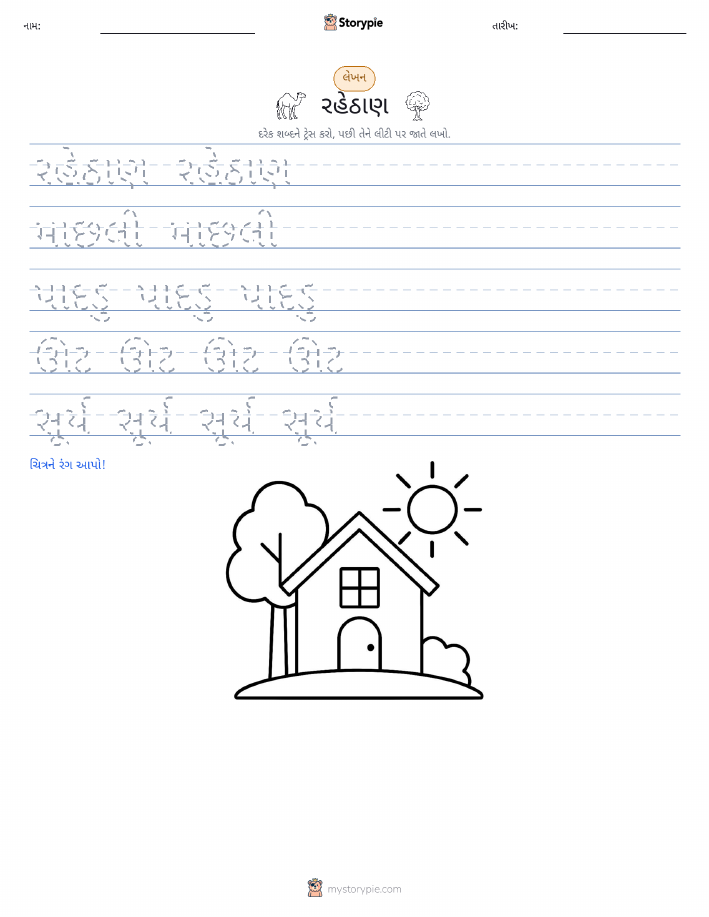 નામ:
Storypie
તારીખ:
લેખન
રહેઠાણ
દરેક શબ્દને ટ્રેસ કરો, પછી તેને લીટી પર જાતે લખો.
રહેઠાણ રહેઠાણ
માછલી માછલી
પાદડુ પાદડુ પાદડુ
ઊંટ ઊંટ ઊંટ ઊંટ
સૂર્ય સૂર્ય સૂર્ય સૂર્ય
ચિત્રને રંગ આપો!
mystorypie.com